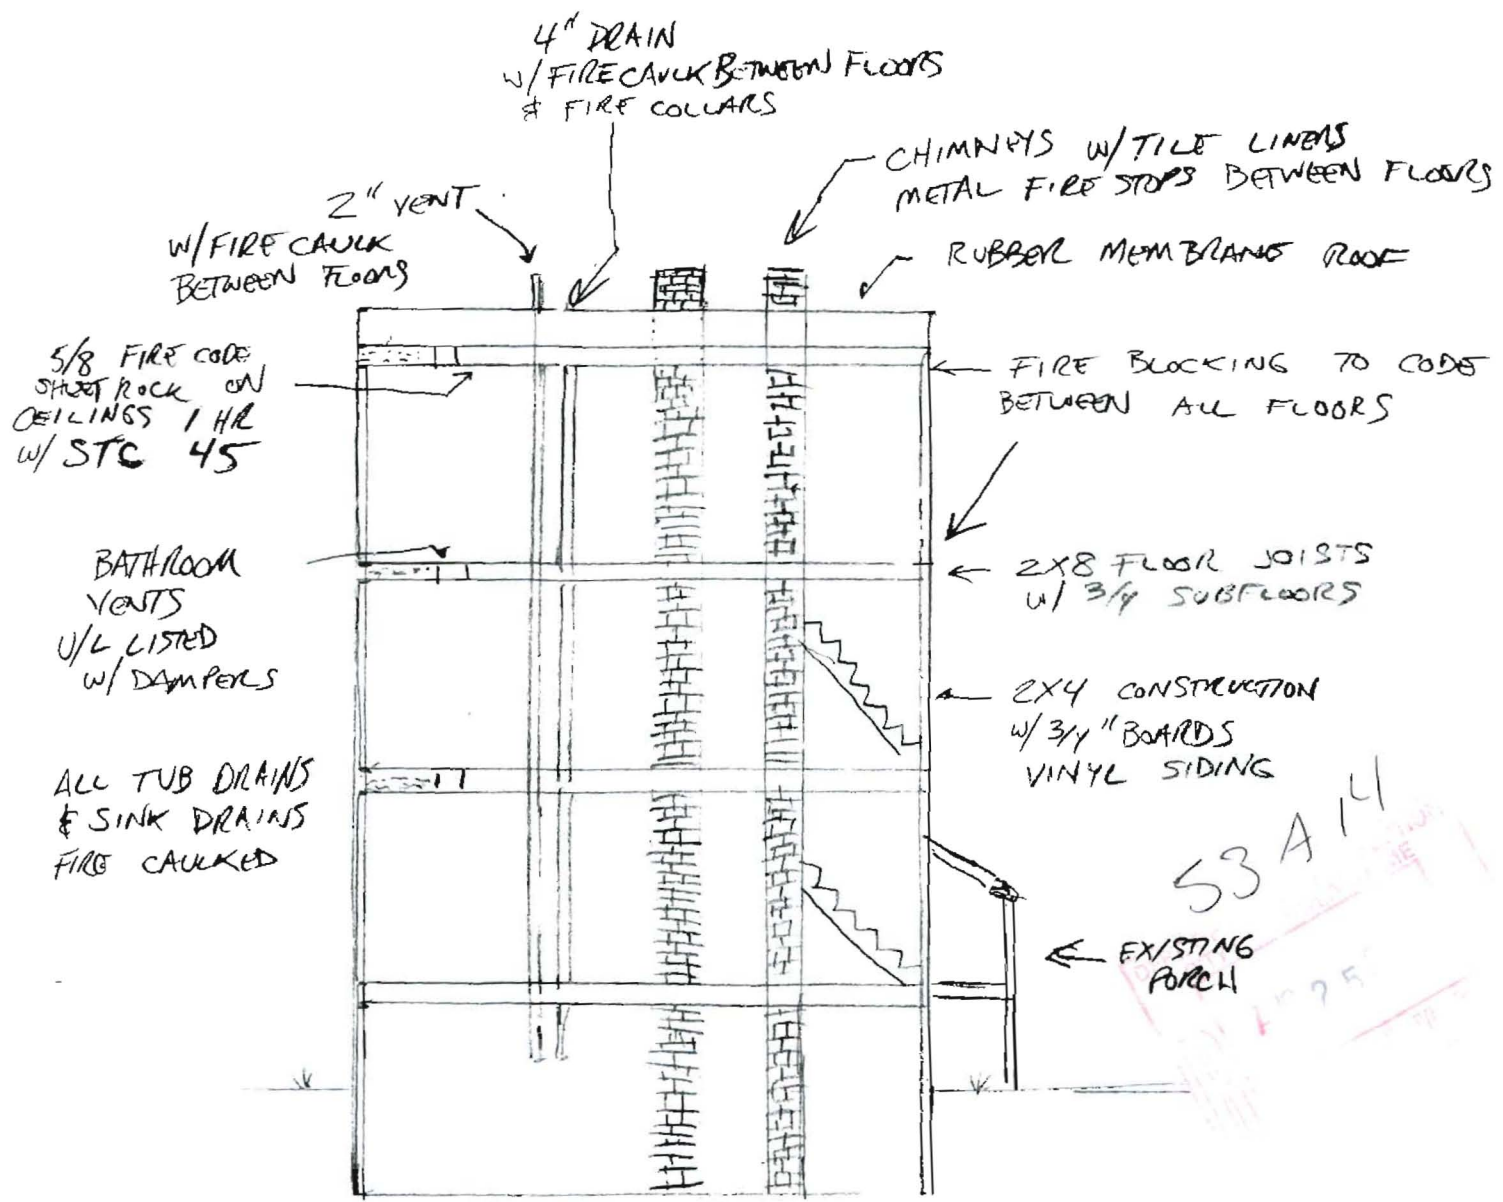 4" DRAIN
W/ FIRE CAULK BETWEEN FLOORS
& FIRE COLLARS
CHIMNEYS W/ TILE LINERS
METAL FIRE STOPS BETWEEN FLOORS
2" VENT
W/ FIRE CAULK
BETWEEN FLOORS
RUBBER MEMBRANE ROOF
5/8 FIRE CODE
SHEET ROCK ON
CEILINGS 1 HR
W/ STC 45
FIRE BLOCKING TO CODE
BETWEEN ALL FLOORS
BATHROOM
VENTS
U/L LISTED
W/ DAMPERS
2X8 FLOOR JOISTS
W/ 3/4 SUBFLOORS
2X4 CONSTRUCTION
W/ 3/4" BOARDS
VINYL SIDING
ALL TUB DRAINS
& SINK DRAINS
FIRE CAULKED
53 A 14
EXISTING
PORCH